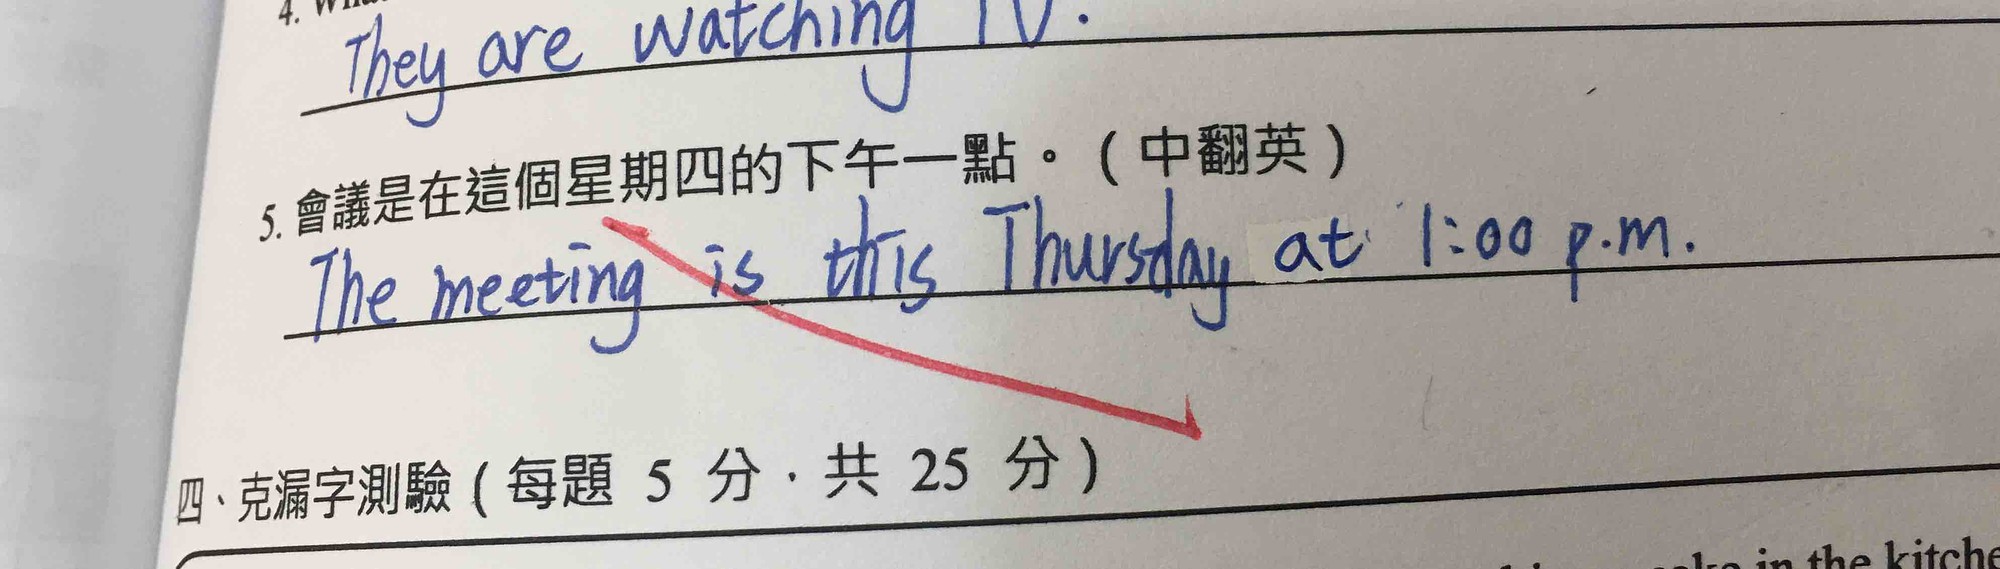 4.
They are watching TV.
5. 會議是在這個星期四的下午一點。(中翻英)
The meeting is this Thursday at 1:00 p.m.
四、克漏字測驗(每題 5 分,共 25 分)
in the